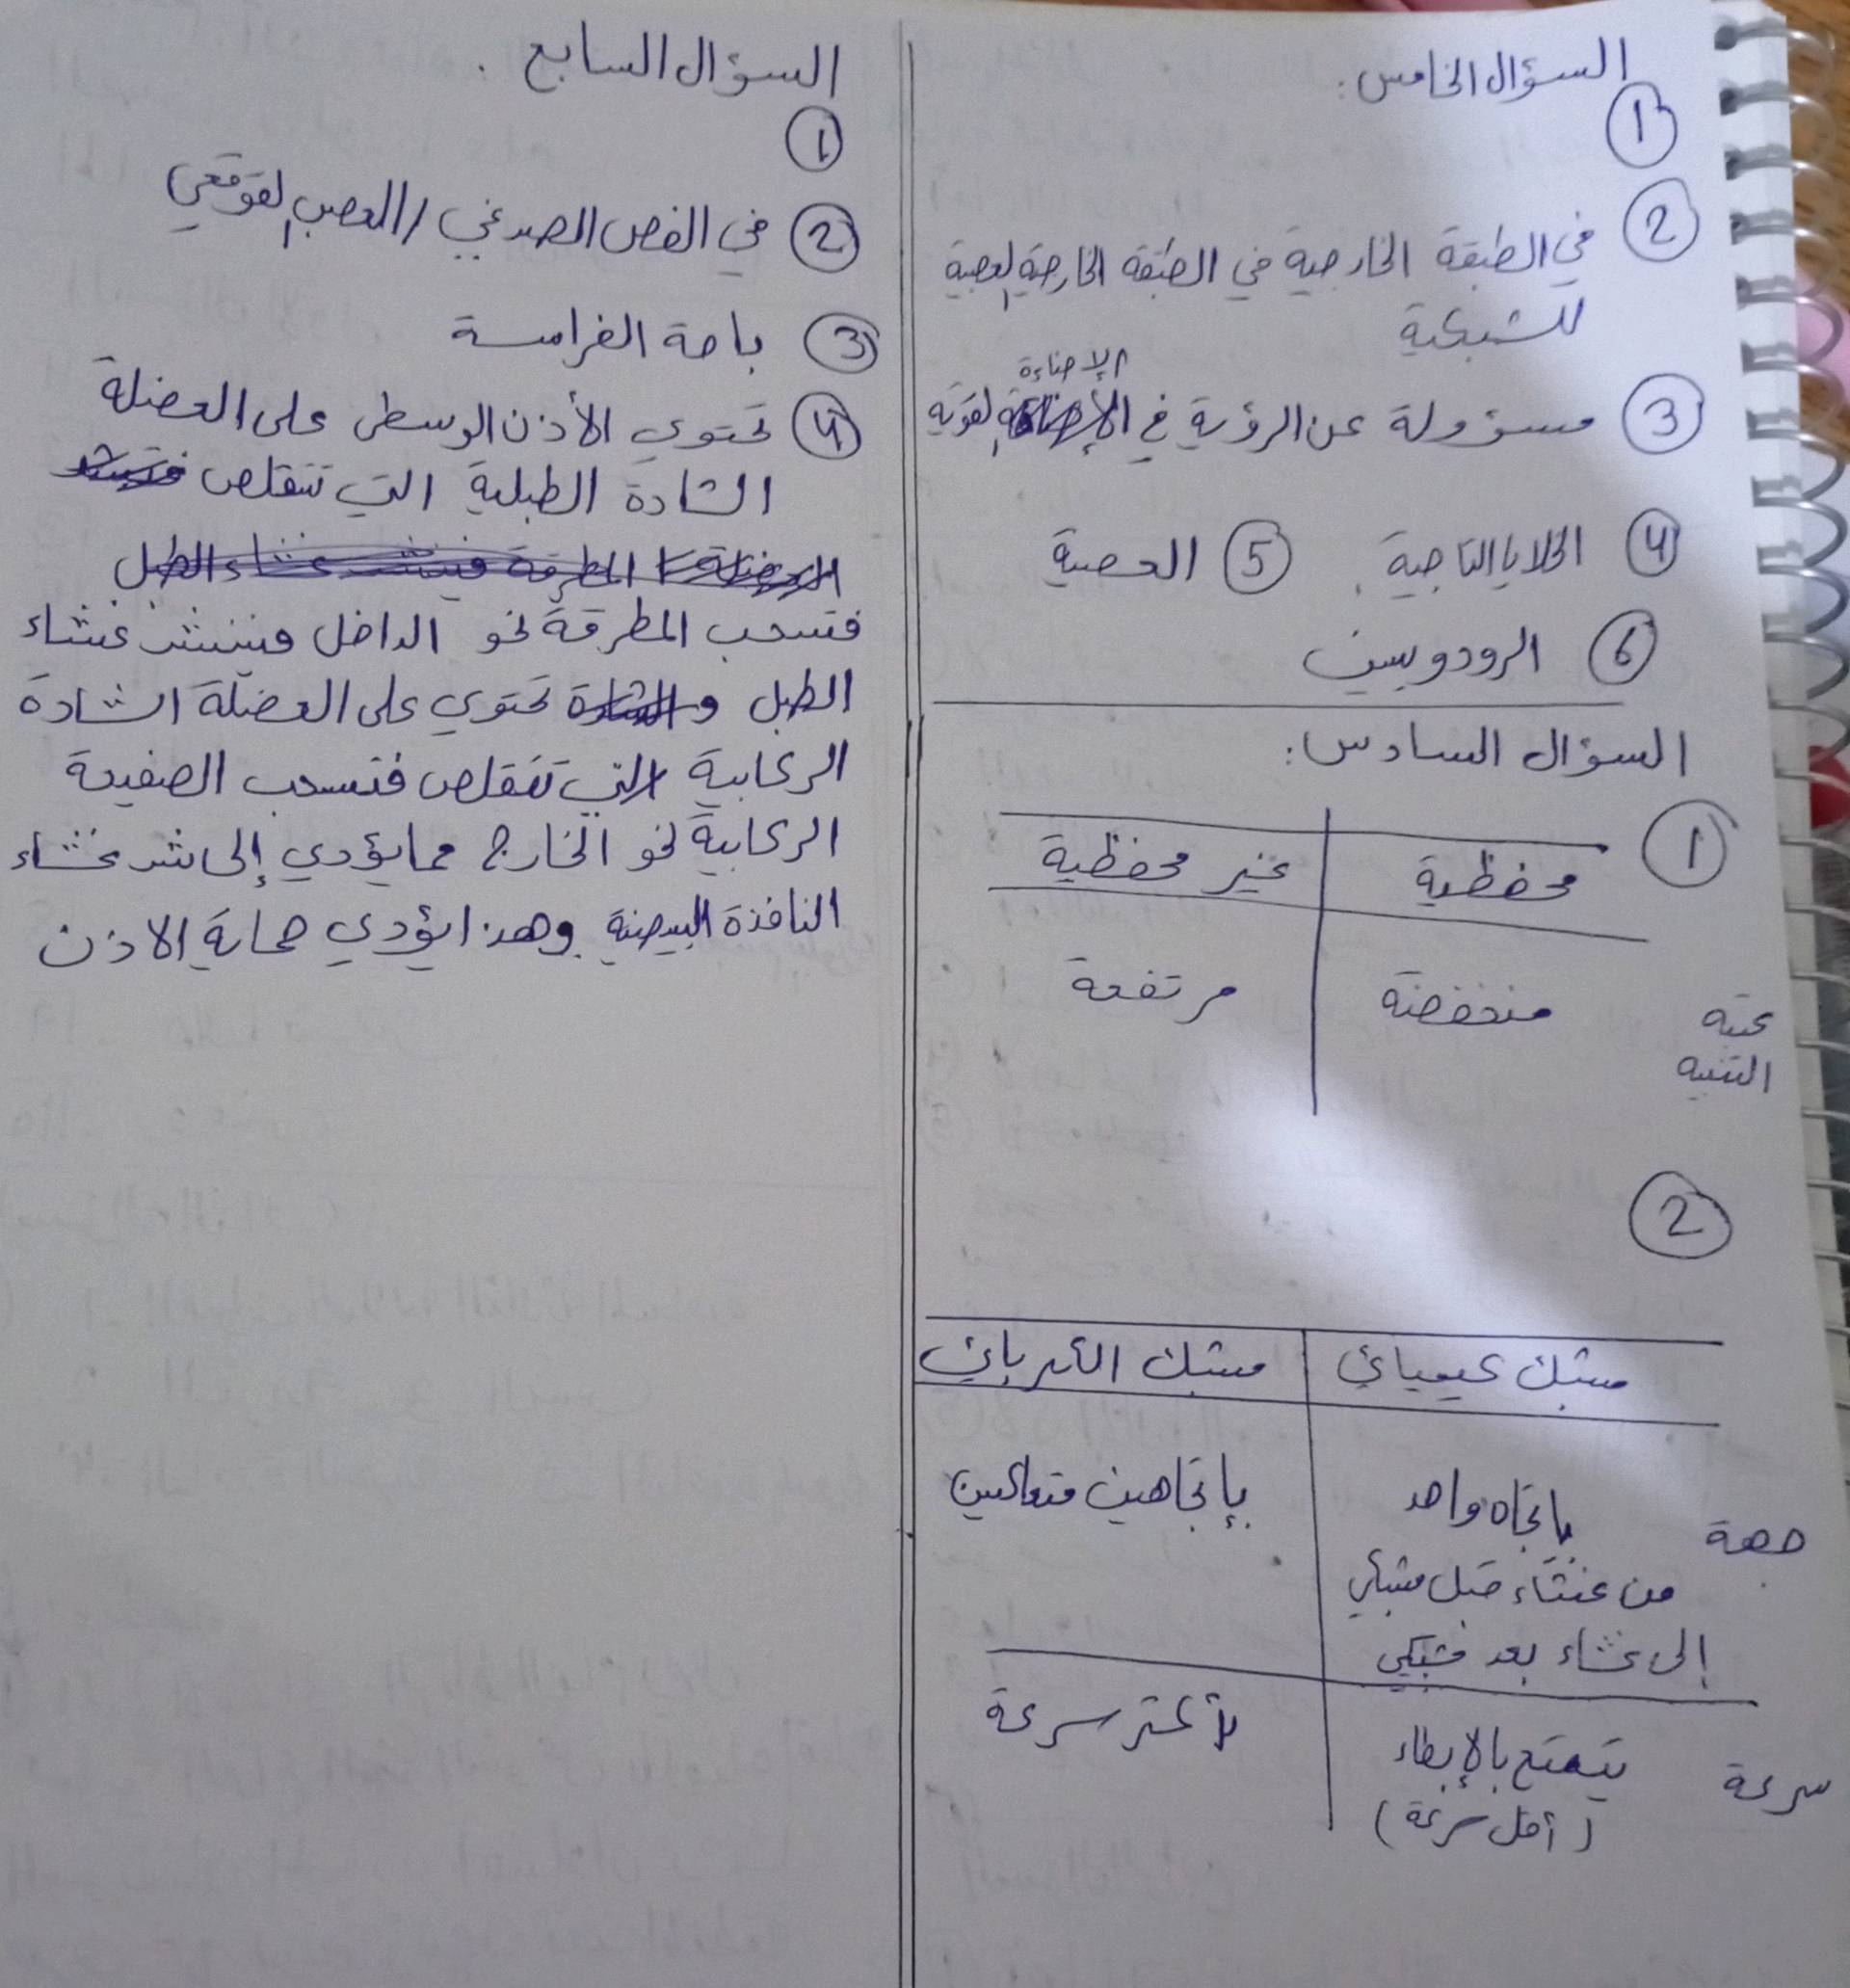 السؤال الخامس:
1
2 في الطبقة الخارجية في الطبقة الخارجية لعصبية
للشبكية
3 مسؤولة عن الرؤية في الإضاءة لقوية
4 الخلايا التاجية . 5 العصبية
6 الرودوبسين
السؤال السادس:
1
محفظية غير محفظية
عتبة التنبيه منخفضة مرتفعة
2
مشبك كيميائي مشبك الكهربائي
جهة باتجاه واحد بإتجاهين متعاكسين
من غشاء قبل مشبكي
إلى غشاء بعد مشبكي
سرعة يتمتع بالإبطاء أكثر سرعة
(أقل سرعة)
السؤال السابع .
1
2 في الفص الصدغي / العصب لقوقعي
3 باحة الفراسة
4 تحتوي الأذن الوسطى على العضلة
الشادة الطبلية التي تتقلص
المطرقة فيشد غشاء الطبل
فتسحب المطرقة نحو الداخل فيشد غشاء
الطبل و تحتوي على العضلة الشادة
الركابية التي تتقلص فتسحب الصفيحة
الركابية نحو الخارج مما يؤدي إلى شد غشاء
النافذة البيضية وهذا يؤدي حماية الاذن